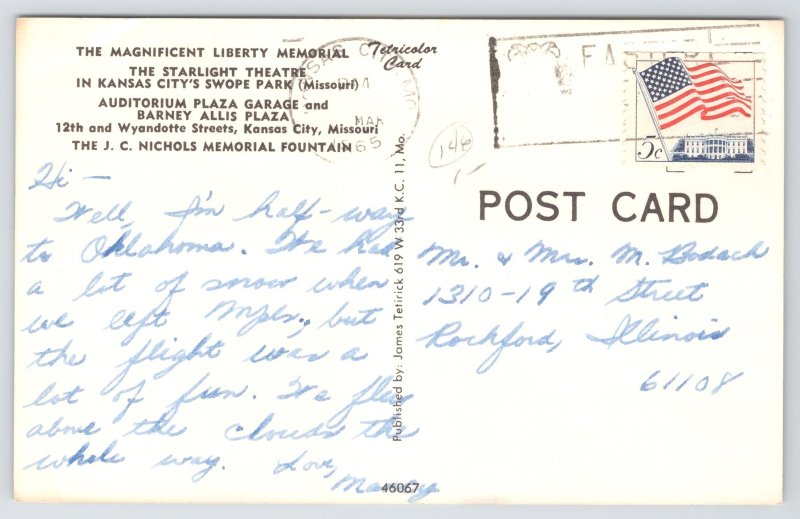 THE MAGNIFICENT LIBERTY MEMORIAL
THE STARLIGHT THEATRE
IN KANSAS CITY'S SWOPE PARK (Missouri)
AUDITORIUM PLAZA GARAGE and
BARNEY ALLIS PLAZA
12th and Wyandotte Streets, Kansas City, Missouri
THE J. C. NICHOLS MEMORIAL FOUNTAIN
Tetricolor
Card
PM
MAR
65
5c
146
POST CARD
Hi —
Well, I'm half-way
to Oklahoma. We had
a lot of snow when
we left Mpls., but
the flight was a
lot of fun. We flew
above the clouds the
whole way. Love,
Published by: James Tetirick 619 W 33rd K.C. 11, Mo.
Mr. & Mrs. M. Bodach
1310-19th Street
Rockford, Illinois
61108
46067